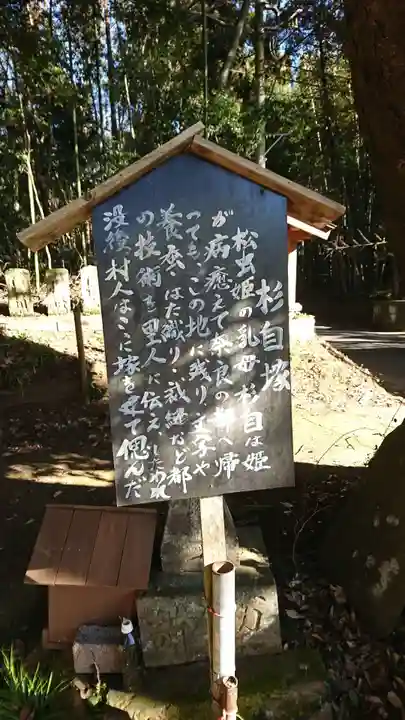 杉自塚
松虫姫の乳母杉自は姫
が病癒えて奈良の都へ帰
っても、この地に残り、王子や
養蚕、はた織り、裁縫など都
の技術を里人に伝え、したわれ
没後、村人はここに塚を建て偲んだ